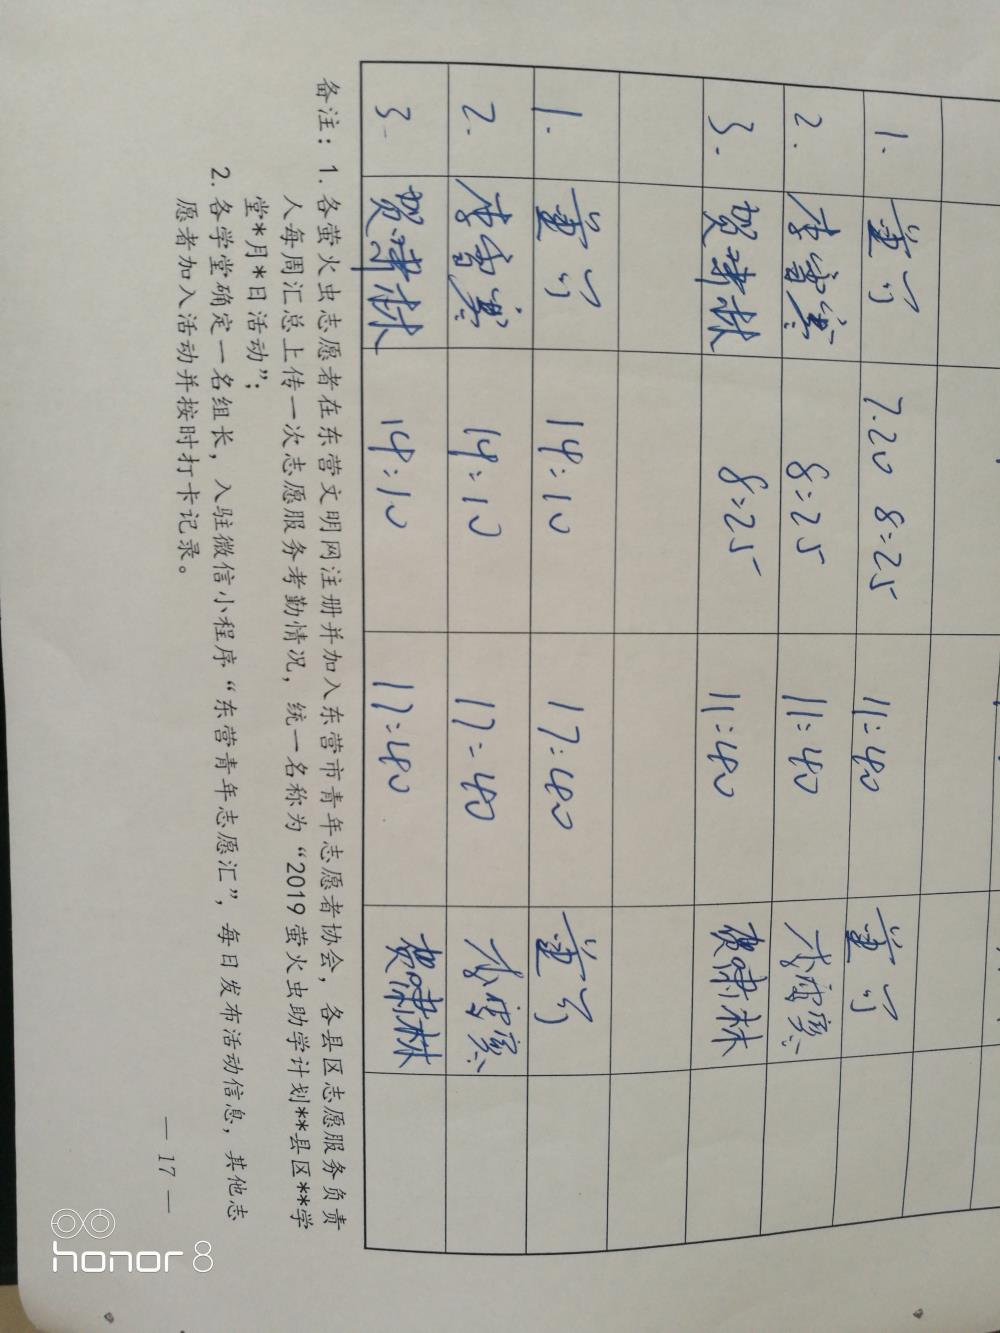 1. 7.20 8:25 11:40
2. 李雪寒 8:25 11:40 李雪寒
3. 贺肃林 8:25 11:40 贺肃林
1. 14:10 17:40
2. 李雪寒 14:10 17:40 李雪寒
3. 贺肃林 14:10 17:40 贺肃林
备注：1. 各萤火虫志愿者在东营文明网注册并加入东营市青年志愿者协会，各县区志愿服务负责
人每周汇总上传一次志愿服务考勤情况，统一名称为“2019萤火虫助学计划**县区**学
堂*月*日活动”；
2. 各学堂确定一名组长，入驻微信小程序“东营青年志愿汇”，每日发布活动信息，其他志
愿者加入活动并按时打卡记录。
— 17 —
honor 8